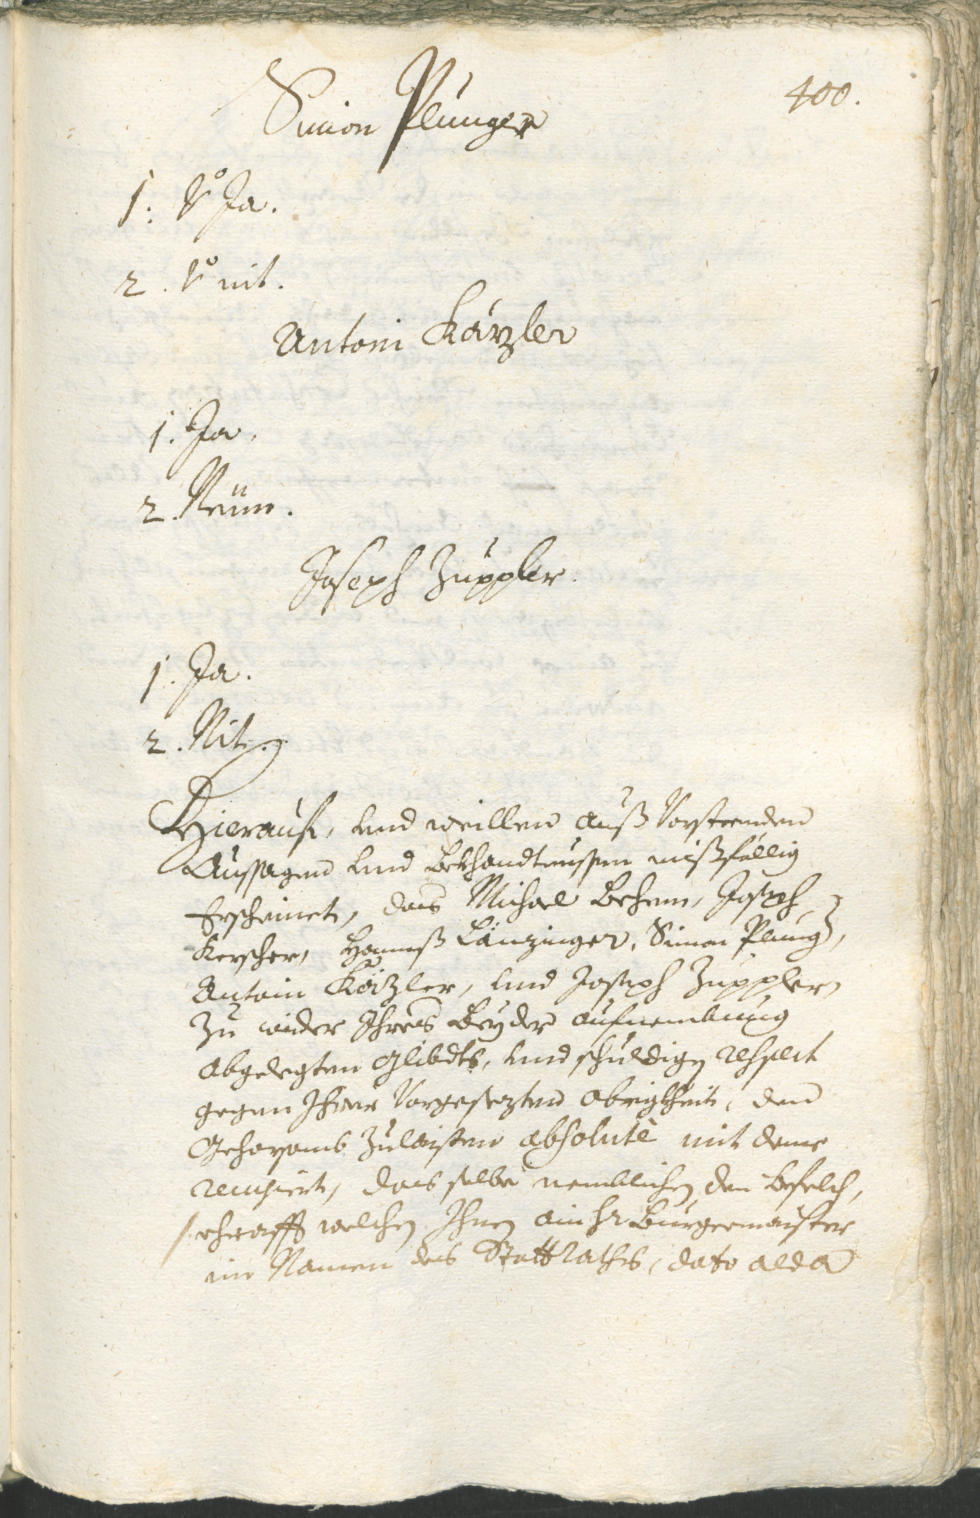 400.
Simon Plunger
1: Rº Ja.
2. Rº nit.
Antoni Közler
1. Ja.
2. Nain.
Joseph Zuppler.
1. Ja.
2. Nit.
Hierauf, und weillen auß Vorsteenden
Aussagen und Bekhandtnussen mißföllig
Erscheinet, das Michael Behem, Joseph
Kerscher, Hannß Länzinger, Simon Plung,
Antoin Közler, und Joseph Zuppler,
zu wider Ihres Beyder aufnembung
abgelegten Glibdts, und schuldign respect
gegen Ihrer Vorgesezten Obrigkheit, den
Gehorsamb zulaisten absolute mit deme
renuirt, das selbe nemblichen den Befelch,
Chrafft welchen Ihnen ain Hr Burgermaister
im Namen des Stattraths, dato alda